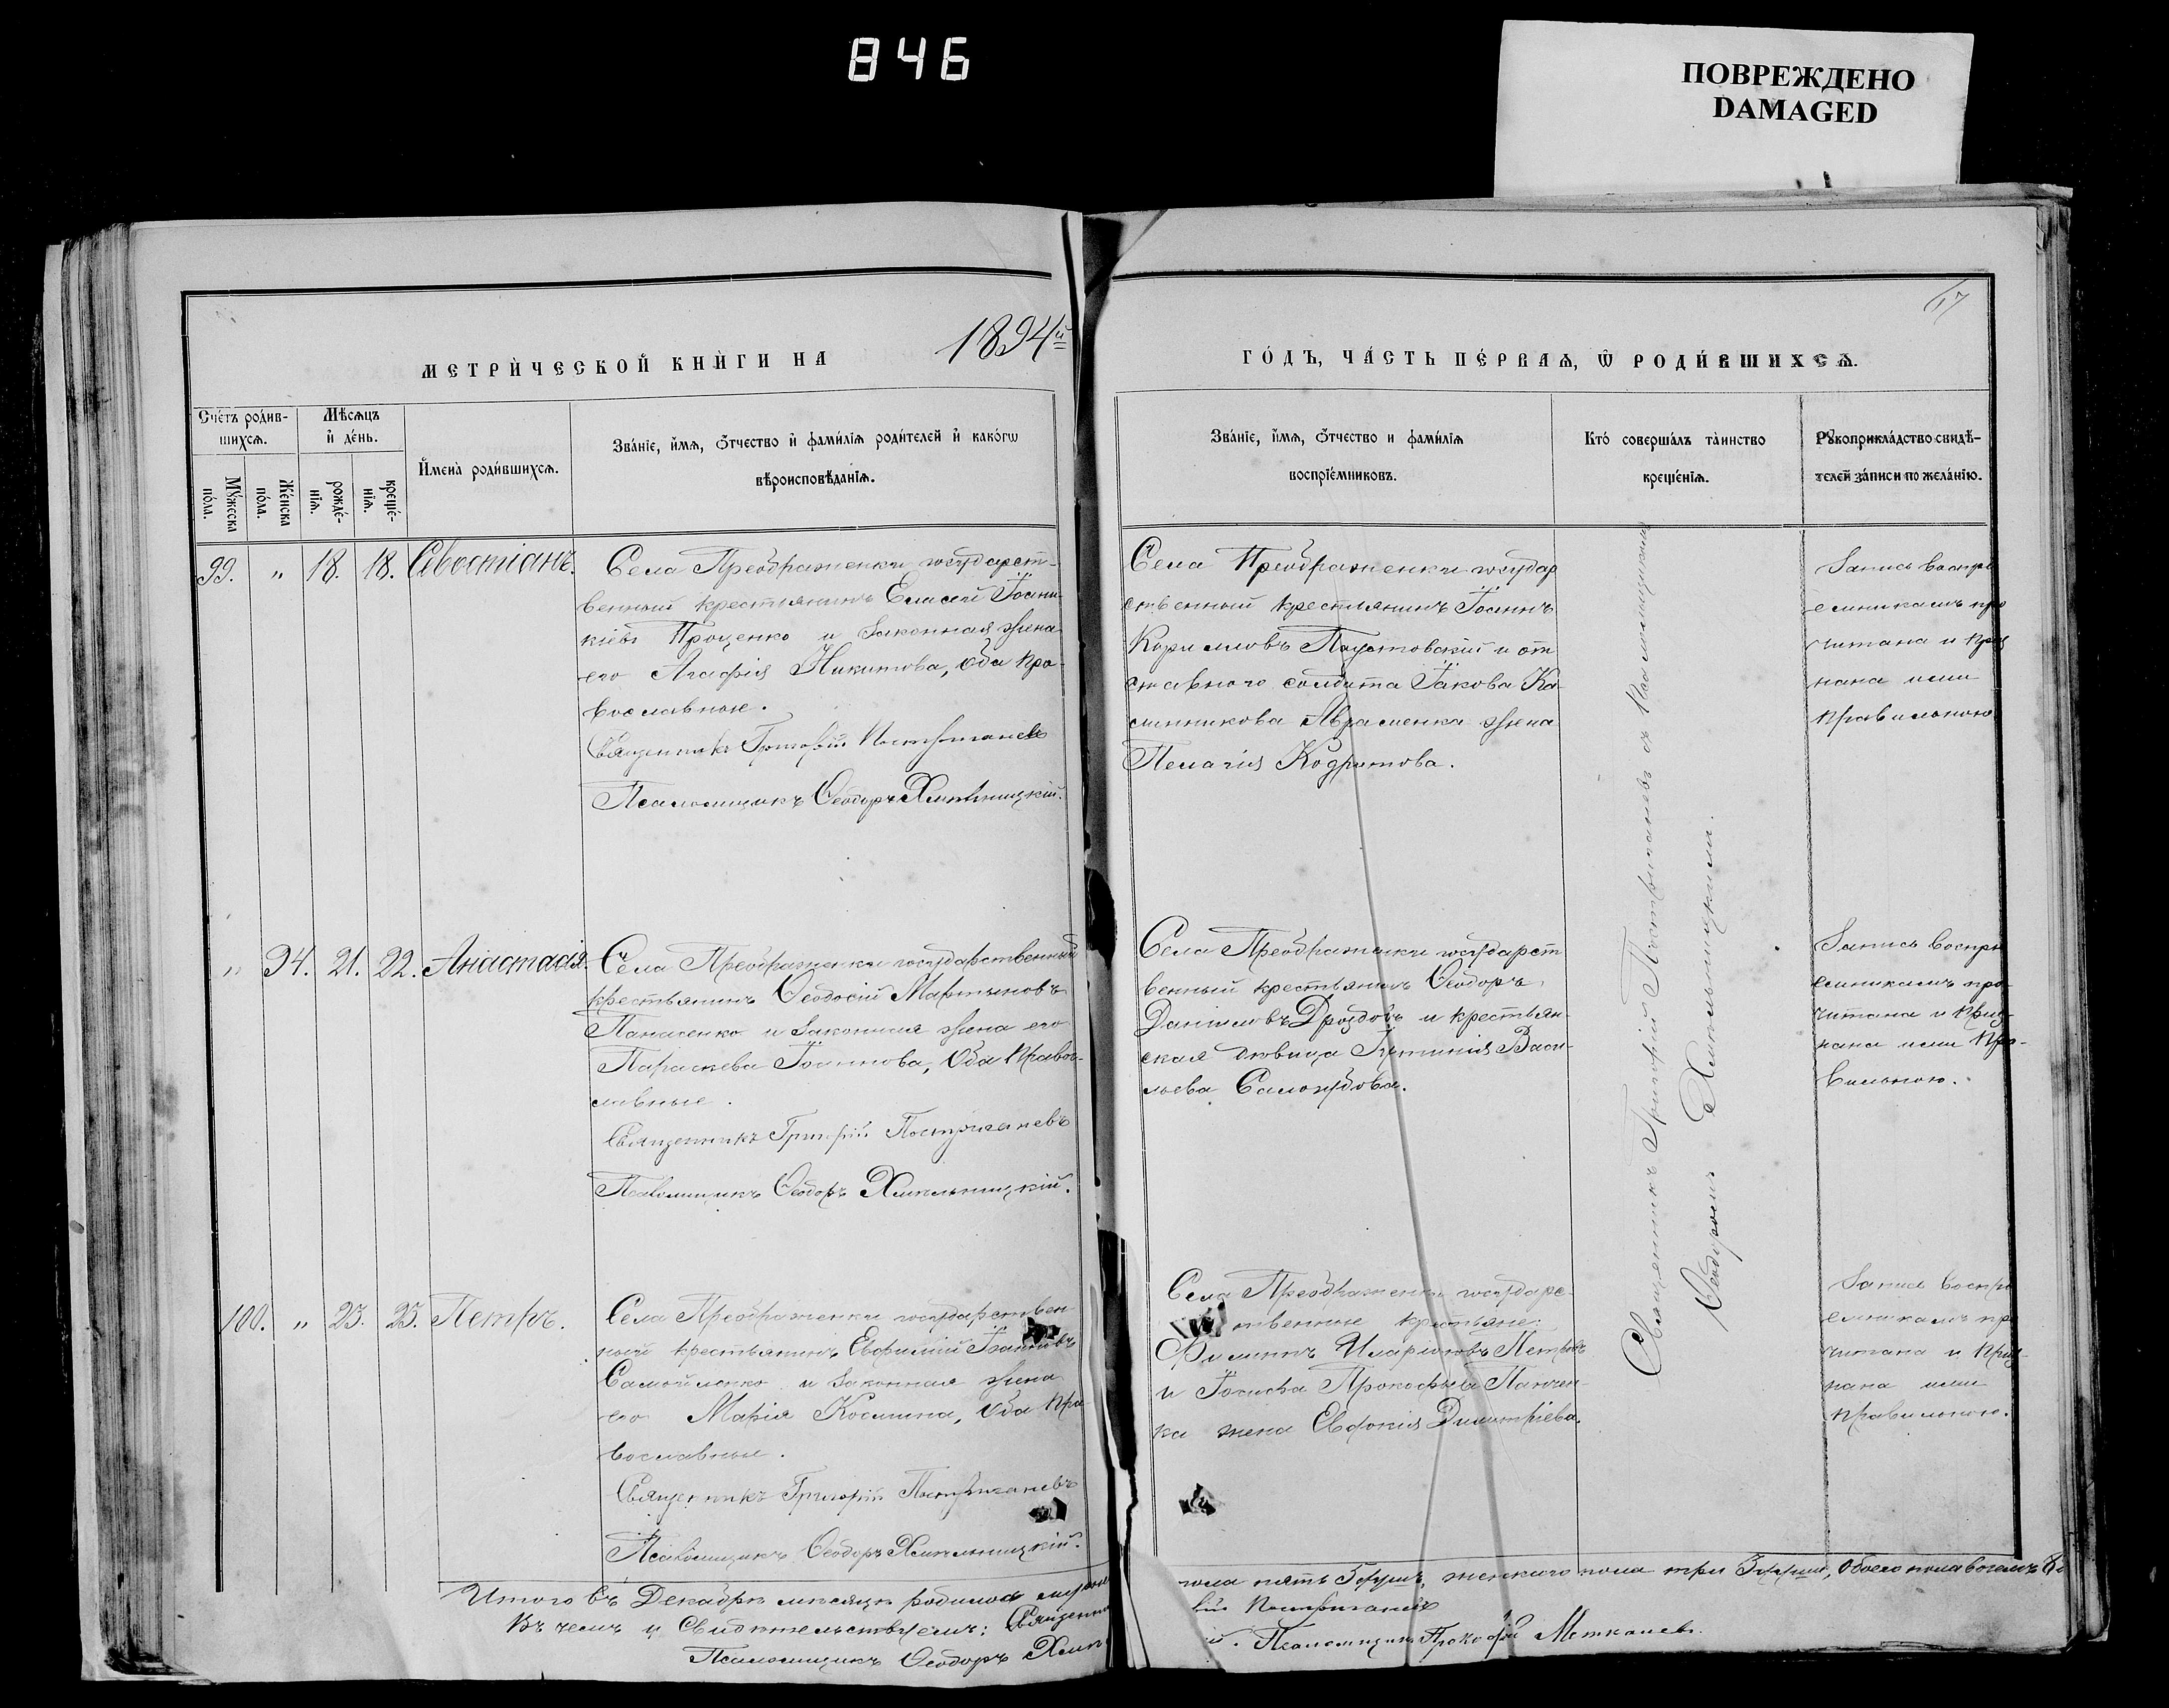 846
ПОВРЕЖДЕНО
DAMAGED
17
МЕТРИ́ЧЕСКОЙ КНИ́ГИ НА 1894й
ГО́ДЪ, ЧА́СТЬ ПЕ́РВАѦ, Ѿ РОДИ́ВШИХСѦ.
Сче́тъ роди́в-
шихсѧ.
Мѣ́сѧцъ
и҆ де́нь.
Мꙋ́жеска
по́ла.
Же́нска
по́ла.
рожде́-
нїѧ.
креще́-
нїѧ.
И҆мена̀ роди́вшихсѧ.
Зва́нїе, и҆́мѧ, ѻ҆́тчество и҆ фами́лїѧ роди́телей и҆ како́гѡ
вѣроисповѣ́данїѧ.
Зва́нїе, и҆́мѧ, ѻ҆́тчество и фами́лїѧ
воспрїе́мниковъ.
Кто́ соверша́лъ та́инство
креще́нїѧ.
Рꙋкоприкла́дство свидѣ́-
телей за́писи по жела́нїю.
99. " 18. 18. Севостіанъ.
Села Преображенки государст-
венный крестьянинъ Елисей Іоанни-
кіевъ Проценко и законная жена
его Агафія Никитова, оба пра-
вославные.
Священникъ Григорій Постриганевъ
Псаломщикъ Ѳеодоръ Хмельницкій.
Села Преображенки государ
ственный крестьянинъ Іоаннъ
Кирилловъ Паустовскій и от
ставного солдата Іакова Ка-
линникова Авраменка жена
Пелагія Кодратова.
Запись воспрі
емникамъ про
читана и приз
нана ими
правильною.
" 94. 21. 22. Анастасія.
Села Преображенки государственный
крестьянинъ Ѳеодосій Мартыновъ
Панасенко и законная жена его
Параскева Іоаннова, оба правос-
лавные.
Священникъ Григорій Постриганевъ
Псаломщикъ Ѳеодоръ Хмельницкій.
Села Преображенки государст
венный крестьянинъ Ѳеодоръ
Даниловъ Дроздовъ и крестьян-
ская дѣвица Васи-
льева
Запись воспрі
емникамъ про-
читана и приз-
нана ими пра-
вильною.
100. " 23. 23. Петръ.
Села Преображенки государствен-
ный крестьянинъ Евфимій Іоанновъ
Самойленко и законная жена
его Марія Космина, оба пра
вославные.
Священникъ Григорій Постриганевъ
Псаломщикъ Ѳеодоръ Хмельницкій.
Села Преображенки государс-
твенные крестьяне:
Филиппъ Иларіоновъ
и Іосифа Прокофьева Панчен-
ка жена Евдокія Димитріева.
Запись воспрі
емникамъ пр
читана и приз-
нана ими
правильною.
Священникъ Григорій Постриганевъ съ псаломщикомъ
Ѳеодоромъ Хмельницкимъ.
Итого въ Декабрѣ мѣсяцѣ родилось мужеск
пола пять душъ, женскаго пола три души, обоего пола восемь
Въ чемъ и свидѣтельствуемъ: Священни
Постриганевъ
Псаломщикъ Ѳеодоръ Хмел
Псаломщикъ Прокофій